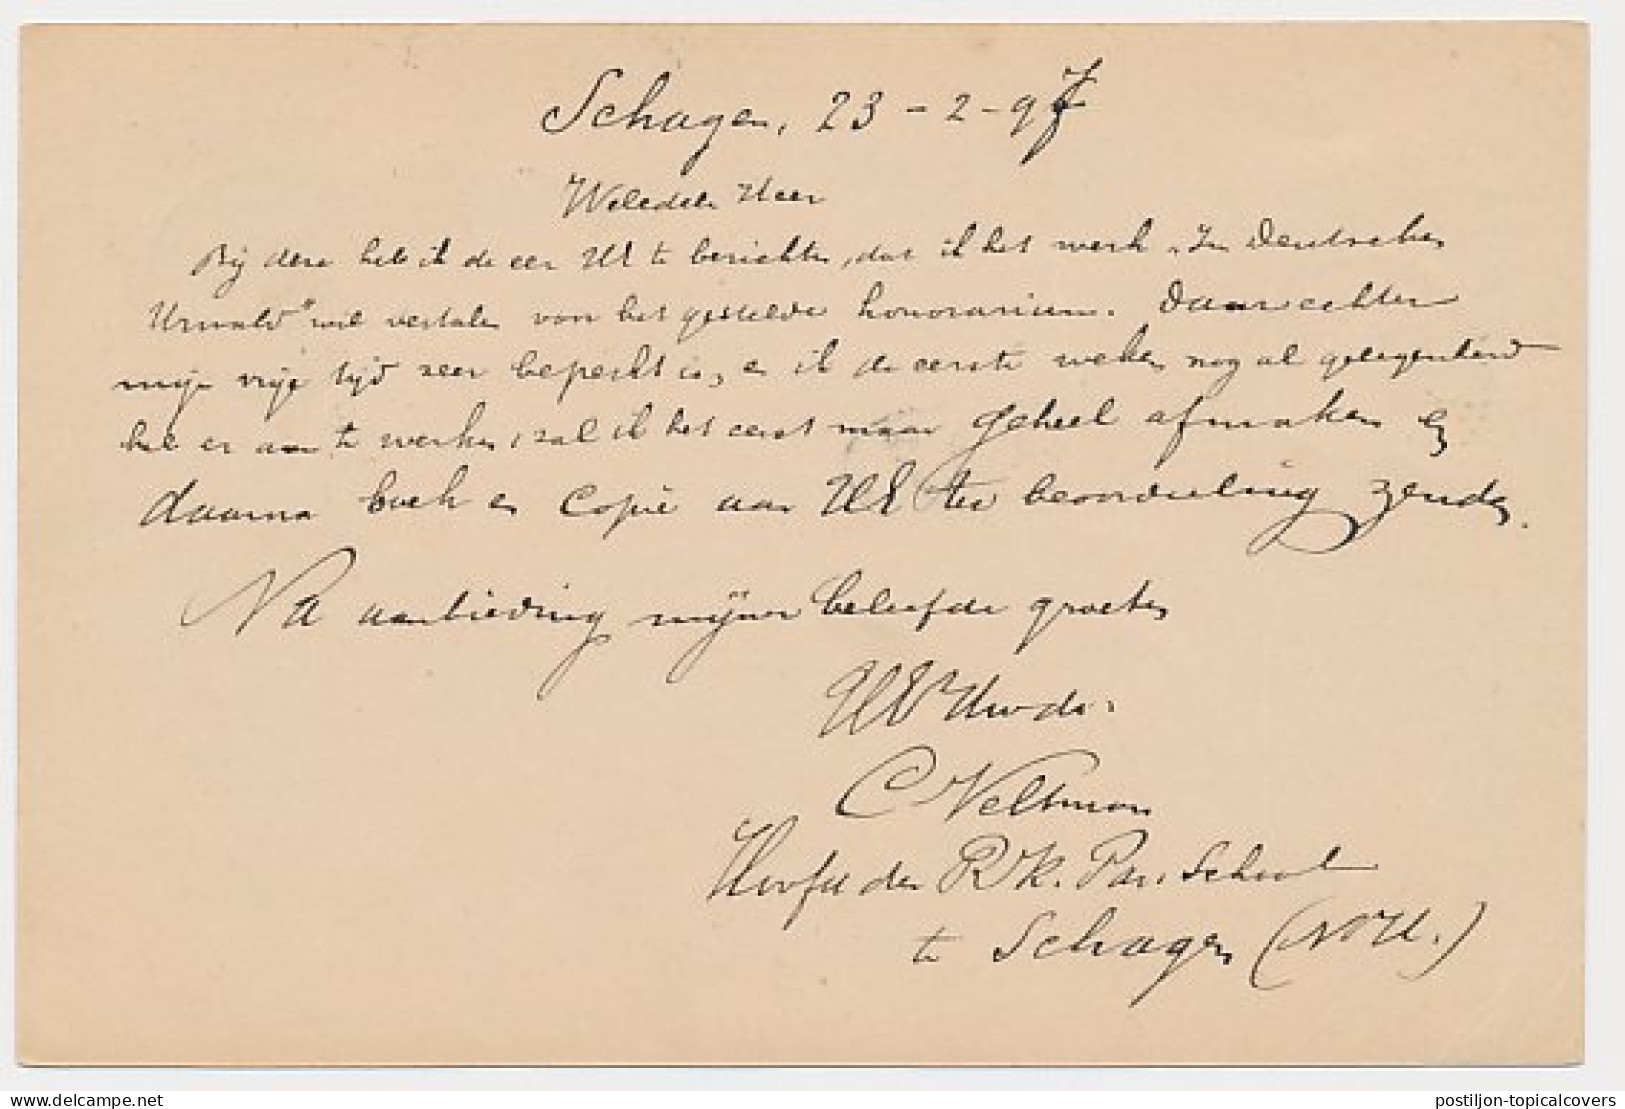 Schagen, 23-2-97
Weledele Heer
Bij deze heb ik de eer UE te berichten, dat ik het werk "Im Deutschen
Urwald" wil vertalen voor het gestelde honorarium. Daar echter
mijn vrije tijd zeer beperkt is, en ik de eerste weken nog al gelegenheid
heb er aan te werken, zal ik het eerst maar geheel afmaken en
daarna boek en copie aan UE ter beoordeeling zenden.
Na aanbieding mijner beleefde groeten
C Veltman
Hoofd der R. K. Par. School
te Schagen (N H.)
postiljon-topicalcovers
delcampe.net